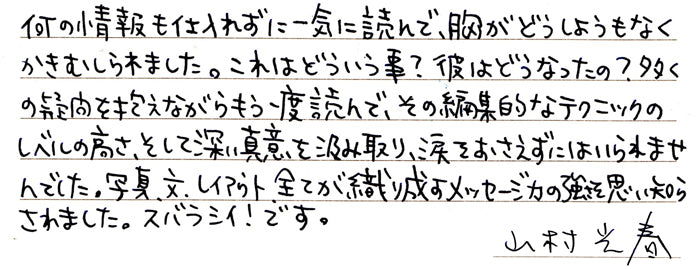 何の情報も仕入れずに一気に読んで、胸がどうしようもなく
かきむしられました。これはどういう事？彼はどうなったの？多く
の疑問を抱えながらもう一度読んで、その編集的なテクニックの
レベルの高さ、そして深い真意を汲み取り、涙をおさえずにはいられませ
んでした。写真、文、レイアウト全てが織り成すメッセージ力の強さを思い知ら
されました。スバラシイ！です。
山村光春